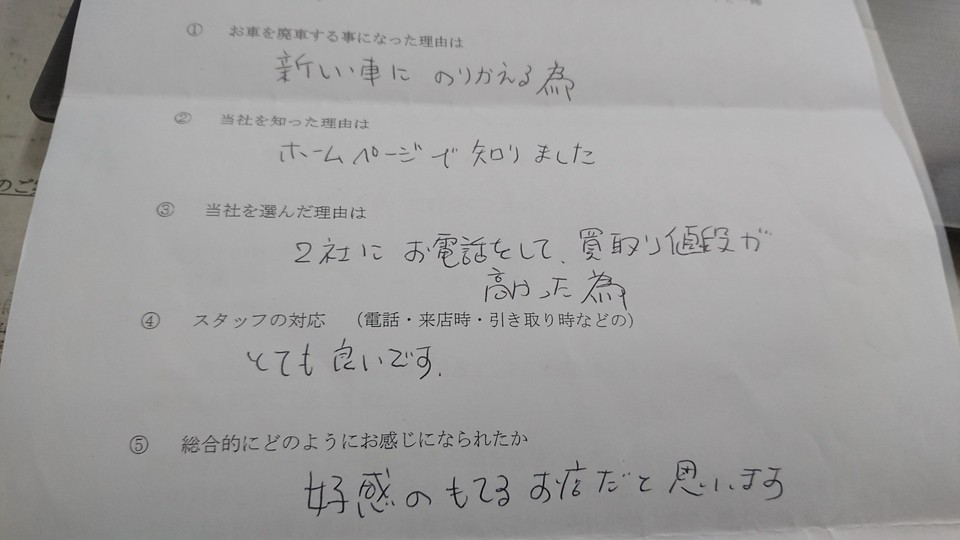 ① お車を廃車する事になった理由は
新しい車に のりかえる為
② 当社を知った理由は
ホームページで 知りました
③ 当社を選んだ理由は
2社に お電話をして、買取り値段が
高かった為
④ スタッフの対応 （電話・来店時・引き取り時などの）
とても 良いです.
⑤ 総合的にどのようにお感じになられたか
好感の もてる お店だと 思います
のご